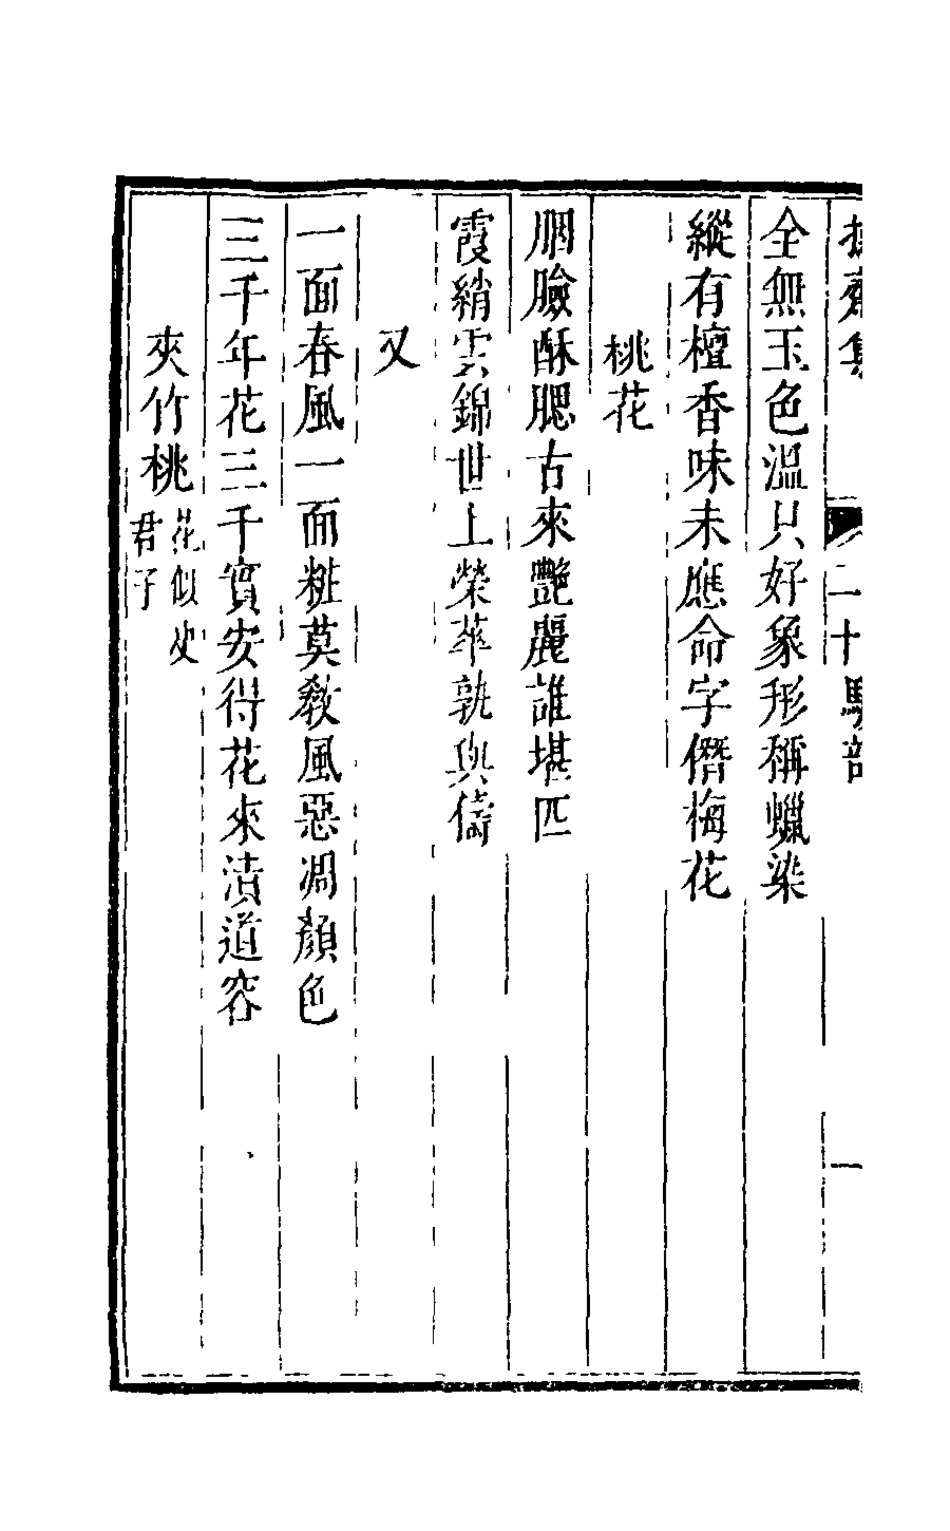 全無玉色溫只好象形稱蠟染
縱有檀香味未應命字僭梅花
桃花
胭臉酥腮古來艷麗誰堪匹
霞綃雲錦世上榮華孰與儔
又
一面春風一面粧莫教風惡凋顏色
三千年花三千實安得花來漬道容
夾竹桃
花似
君子